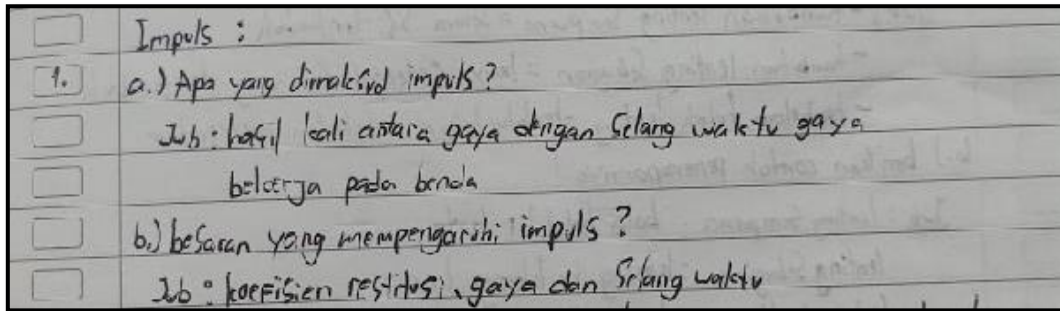 Impuls :
1. a.) Apa yang dimaksud impuls?
Jwb : hasil kali antara gaya dengan Selang waktu gaya
bekerja pada benda
b.) besaran yang mempengaruhi impuls?
Jwb : koefisien restitusi, gaya dan Selang waktu